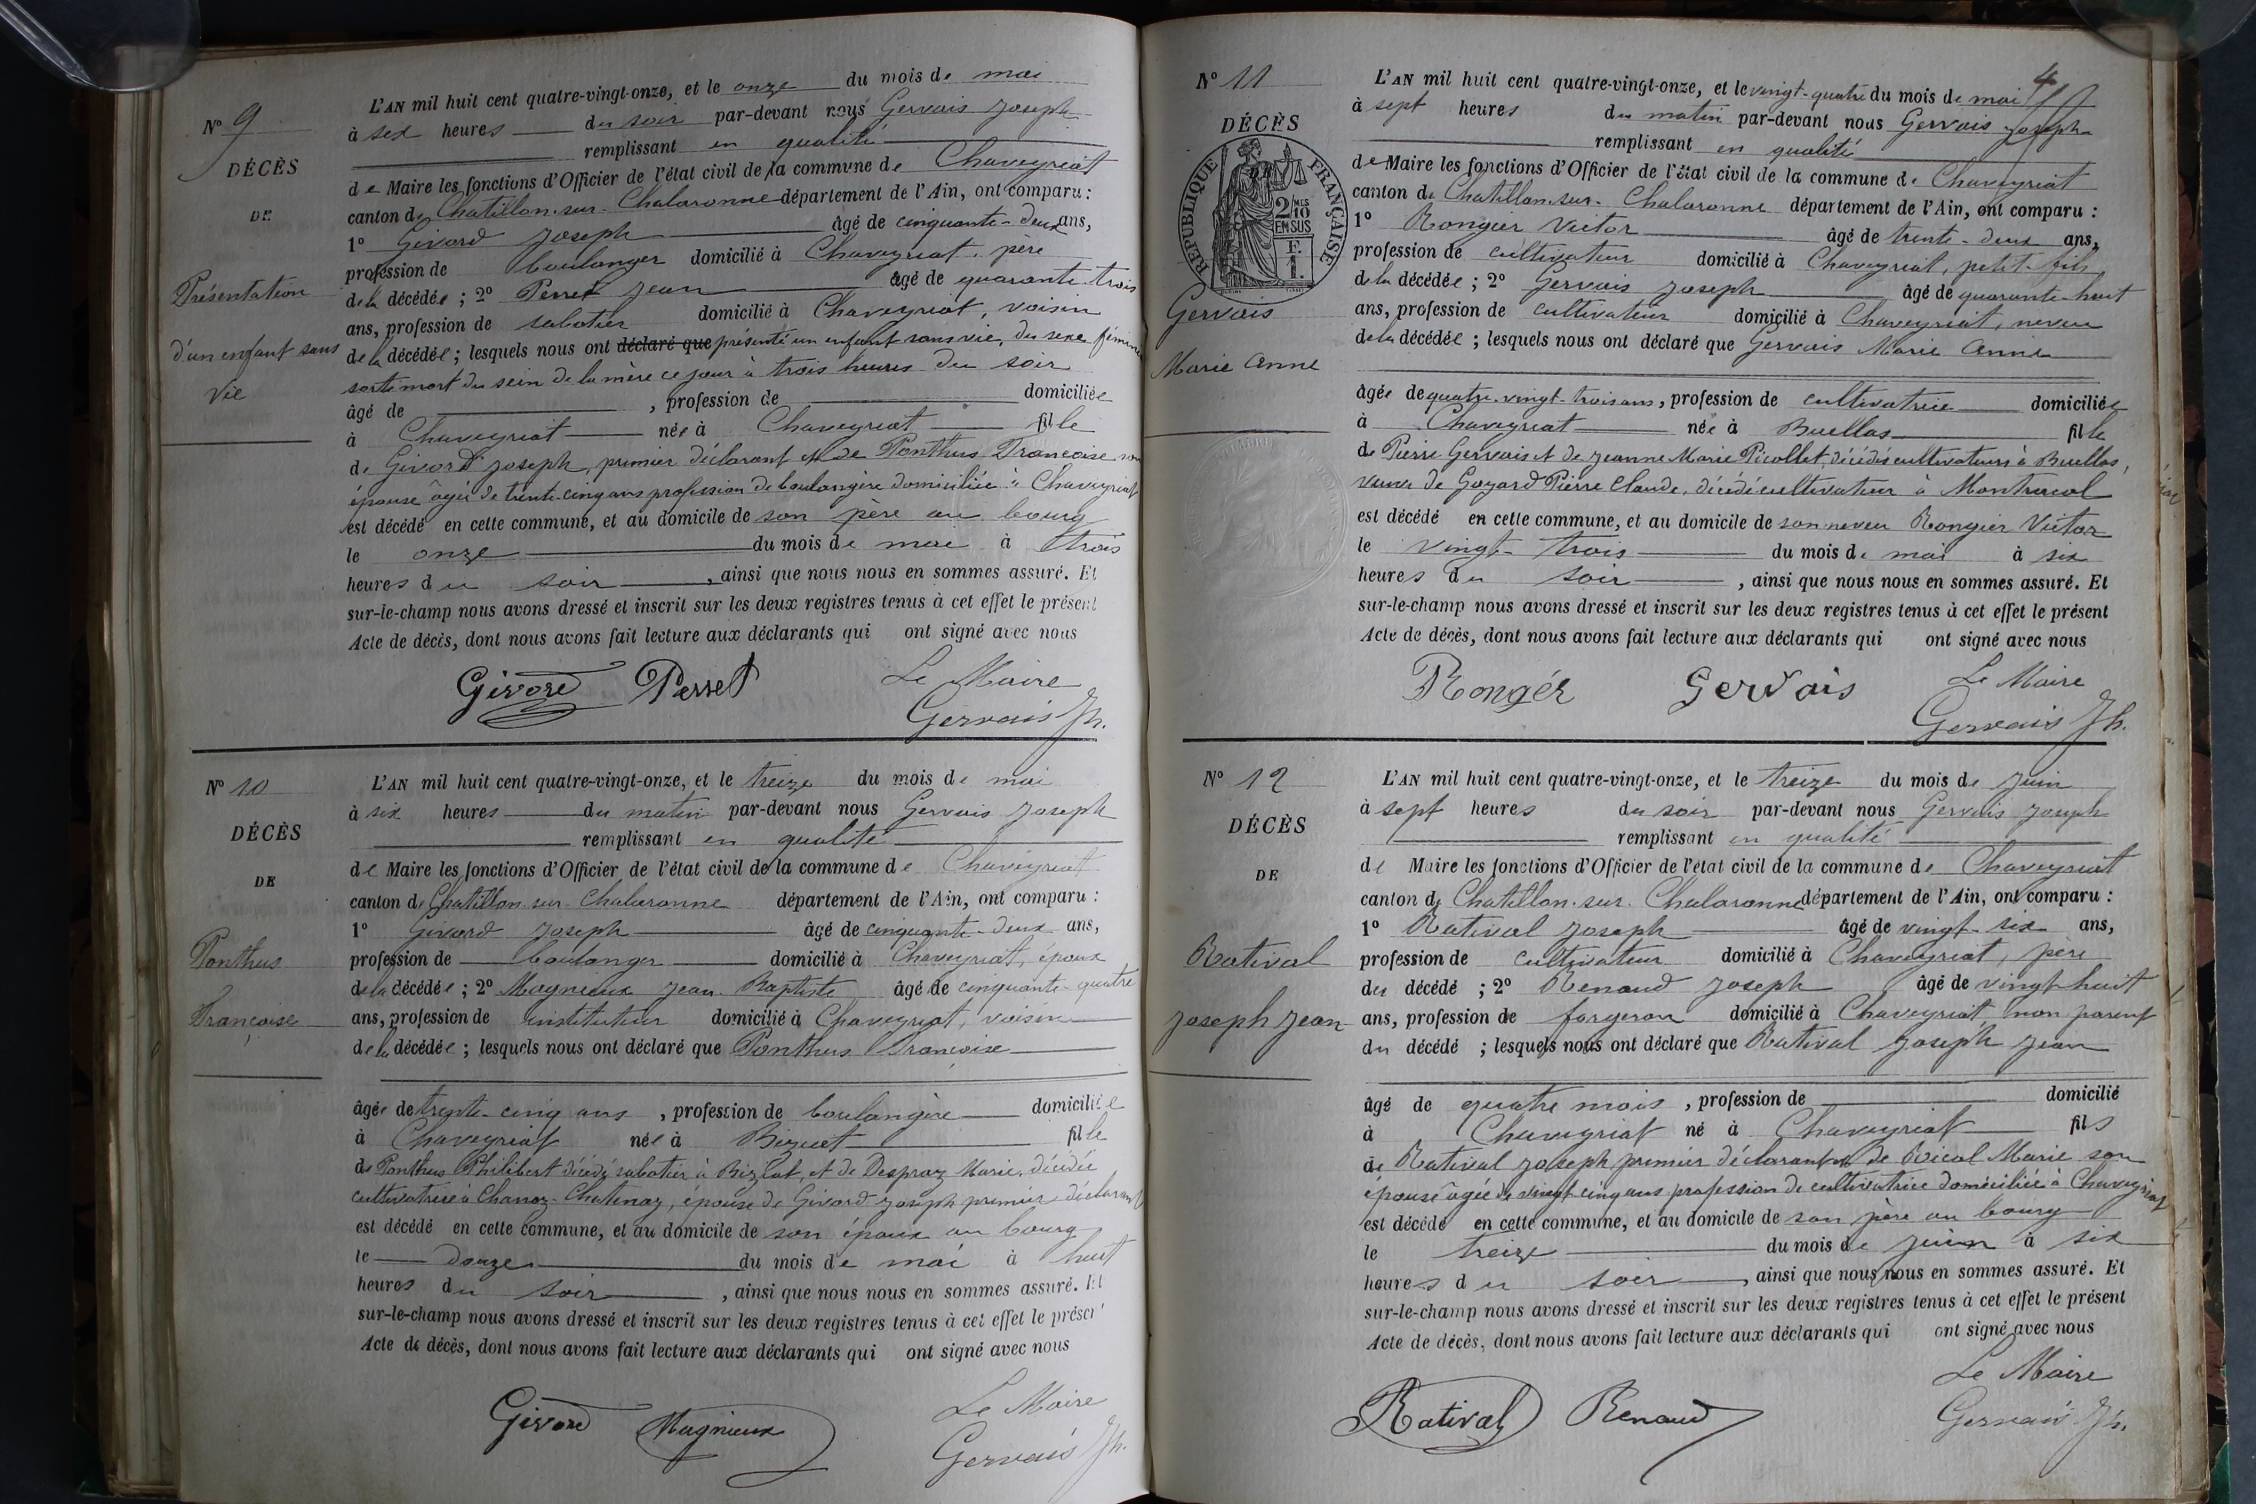 Nº 9
DÉCÈS
DE
Présentation
d'un enfant sans
vie
L'AN mil huit cent quatre-vingt-onze, et le onze du mois de mai
à six heures du soir par-devant nous Gervais Joseph
remplissant en qualité
de Maire les fonctions d'Officier de l'état civil de la commune de Chaveyriat
canton de Chatillon-sur-Chalaronne département de l'Ain, ont comparu :
1º Givord Joseph âgé de cinquante-deux ans,
profession de boulanger domicilié à Chaveyriat, père
de la décédée ; 2º Perret Jean âgé de quarante-trois
ans, profession de sabotier domicilié à Chaveyriat, voisin
de la décédée ; lesquels nous ont déclaré que présenté un enfant sans vie, du sexe féminin
sorti mort du sein de la mère ce jour à trois heures du soir
âgé de , profession de domiciliée
à Chaveyriat née à Chaveyriat fille
de Givord Joseph, premier déclarant et de Ponthus Francoise son
épouse âgée de trente-cinq ans profession de boulangère domiciliée à Chaveyriat
est décédé en cette commune, et au domicile de son père au bourg
le onze du mois de mai à trois
heures du soir, ainsi que nous nous en sommes assuré. Et
sur-le-champ nous avons dressé et inscrit sur les deux registres tenus à cet effet le présent
Acte de décès, dont nous avons fait lecture aux déclarants qui ont signé avec nous
Givord Perret Le Maire
Gervais Jh.
Nº 10
DÉCÈS
DE
Ponthus
Francoise
L'AN mil huit cent quatre-vingt-onze, et le treize du mois de mai
à six heures du matin par-devant nous Gervais Joseph
remplissant en qualité
de Maire les fonctions d'Officier de l'état civil de la commune de Chaveyriat
canton de Chatillon-sur-Chalaronne département de l'Ain, ont comparu :
1º Givord Joseph âgé de cinquante-deux ans,
profession de boulanger domicilié à Chaveyriat, époux
de la décédée ; 2º Magnieux Jean-Baptiste âgé de cinquante-quatre
ans, profession de instituteur domicilié à Chaveyriat, voisin
de la décédée ; lesquels nous ont déclaré que Ponthus Francoise
âgée de trente-cinq ans, profession de boulangère domiciliée
à Chaveyriat née à Biziat fille
de Ponthus Philibert décédé sabotier à Biziat, et de Despraz Marie, décédée
cultivatrice à Chanoz-Chatenay, épouse de Givord Joseph premier déclarant
est décédé en cette commune, et au domicile de son époux au bourg
le douze du mois de mai à huit
heures du soir, ainsi que nous nous en sommes assuré. Et
sur-le-champ nous avons dressé et inscrit sur les deux registres tenus à cet effet le présent
Acte de décès, dont nous avons fait lecture aux déclarants qui ont signé avec nous
Givord Magnieux Le Maire
Gervais Jh.
4
Nº 11
DÉCÈS
RÉPUBLIQUE FRANÇAISE
2 MES
10
EN SUS
F.
1.
Gervais
Marie Anne
L'AN mil huit cent quatre-vingt-onze, et le vingt-quatre du mois de mai
à sept heures du matin par-devant nous Gervais Joseph
remplissant en qualité
de Maire les fonctions d'Officier de l'état civil de la commune de Chaveyriat
canton de Chatillon-sur-Chalaronne département de l'Ain, ont comparu :
1º Rongier Victor âgé de trente-deux ans,
profession de cultivateur domicilié à Chaveyriat, petit-fils
de la décédée ; 2º Gervais Joseph âgé de quarante-huit
ans, profession de cultivateur domicilié à Chaveyriat, neveu
de la décédée ; lesquels nous ont déclaré que Gervais Marie Anne
âgée de quatre-vingt-trois ans, profession de cultivatrice domiciliée
à Chaveyriat née à Buellas fille
de Pierre Gervais et de Jeanne Marie Picollet, décédés cultivateurs à Buellas,
veuve de Goyard Pierre Claude, décédé cultivateur à Montracol
est décédé en cette commune, et au domicile de son neveu Rongier Victor
le vingt-trois du mois de mai à six
heures du soir, ainsi que nous nous en sommes assuré. Et
sur-le-champ nous avons dressé et inscrit sur les deux registres tenus à cet effet le présent
Acte de décès, dont nous avons fait lecture aux déclarants qui ont signé avec nous
Rongér Gervais Le Maire
Gervais Jh.
Nº 12
DÉCÈS
DE
Ratival
Joseph Jean
L'AN mil huit cent quatre-vingt-onze, et le treize du mois de juin
à sept heures du soir par-devant nous Gervais Joseph
remplissant en qualité
de Maire les fonctions d'Officier de l'état civil de la commune de Chaveyriat
canton de Chatillon-sur-Chalaronne département de l'Ain, ont comparu :
1º Ratival Joseph âgé de vingt-six ans,
profession de cultivateur domicilié à Chaveyriat, père
du décédé ; 2º Renaud Joseph âgé de vingt-huit
ans, profession de forgeron domicilié à Chaveyriat non parent
du décédé ; lesquels nous ont déclaré que Ratival Joseph Jean
âgé de quatre mois, profession de domicilié
à Chaveyriat né à Chaveyriat fils
de Ratival Joseph premier déclarant et de Marie son
épouse âgée de vingt-cinq ans profession de cultivatrice domiciliée à Chaveyriat
est décédé en cette commune, et au domicile de son père au bourg
le treize du mois de juin à six
heures du soir, ainsi que nous nous en sommes assuré. Et
sur-le-champ nous avons dressé et inscrit sur les deux registres tenus à cet effet le présent
Acte de décès, dont nous avons fait lecture aux déclarants qui ont signé avec nous
Ratival Renaud Le Maire
Gervais Jh.